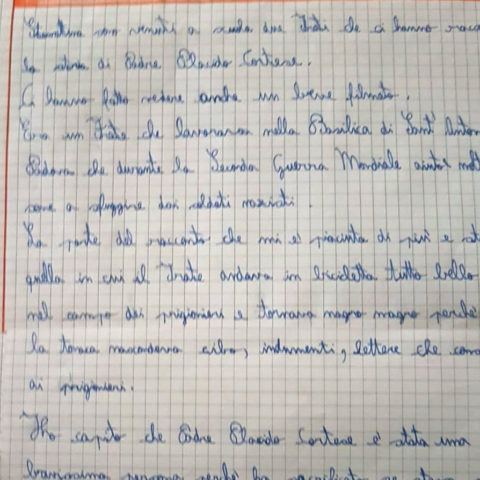 Stamattina sono venuti a scuola due frati che ci hanno racco
la storia di Padre Placido Cortese.
Ci hanno fatto vedere anche un breve filmato.
Era un frate che lavorava nella Basilica di Sant' Anton
Padova che durante la Seconda Guerra Mondiale aiutò molt
sone a sfuggire dai soldati nazisti.
La parte del racconto che mi è piaciuta di più è sta
quella in cui il frate andava in bicicletta tutto bello
nel campo dei prigionieri e tornava magro magro perché
la tonaca nascondeva cibo, indumenti, lettere che cons
ai prigionieri.
Ho capito che Padre Placido Cortese è stata una
bravissima persona perché ha sacrificato